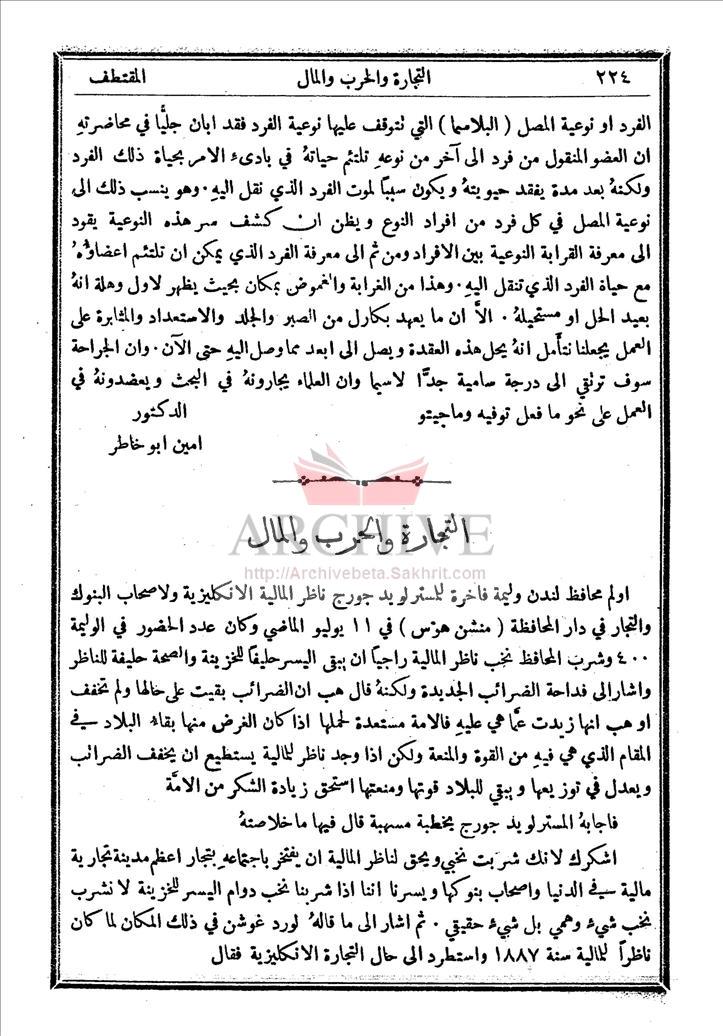 ٢٢٤
التجارة والحرب والمال
المقتطف
الفرد او نوعية المصل (البلاسما) التي نتوقف عليها نوعية الفرد فقد ابان جليًّا في محاضرتهِ
ان العضو المنقول من فرد الى آخر من نوعهِ تلتئم حياتهُ في بادىء الامر بحياة ذلك الفرد
ولكنهُ بعد مدة يفقد حيويتهُ ويكون سبباً لموت الفرد الذي نقل اليهِ. وهو ينسب ذلك الى
نوعية المصل في كل فرد من افراد النوع ويظن ان كشف سر هذه النوعية يقود
الى معرفة القرابة النوعية بين الافراد ومن ثم الى معرفة الفرد الذي يمكن ان تلتئم اعضاؤُهُ
مع حياة الفرد الذي تنقل اليهِ. وهذا من الغرابة والغموض بمكان بحيث يظهر لاول وهلة انهُ
بعيد الحل او مستحيلهُ. الاَّ ان ما يعهد بكارل من الصبر والجلد والاستعداد والمثابرة على
العمل يجعلنا نتأمل انهُ يحل هذه العقدة ويصل الى ابعد مما وصل اليهِ حتى الآن. وان الجراحة
سوف ترتقي الى درجة سامية جدًّا لاسيما وان العلماء يجارونهُ في البحث ويعضدونهُ في
العمل على نحو ما فعل توفيه وماجيتو
الدكتور
امين ابو خاطر
ARCHIVE
http://Archivebeta.Sakhrit.com
التجارة والحرب والمال
اولم محافظ لندن وليمة فاخرة للمستر لويد جورج ناظر المالية الانكليزية ولاصحاب البنوك
والتجار في دار المحافظة (منشن هوّس) في ١١ يوليو الماضي وكان عدد الحضور في الوليمة
٤٠٠ وشرب المحافظ نخب ناظر المالية راجياً ان يبقى اليسر حليفاً للخزينة والصحة حليفة للناظر
واشار الى فداحة الضرائب الجديدة ولكنهُ قال هب ان الضرائب بقيت على حالها ولم تخفف
او هب انها زيدت عمَّا هي عليهِ فالامة مستعدة لحملها اذا كان الغرض منها بقاء البلاد في
المقام الذي هي فيهِ من القوة والمنعة ولكن اذا وجد ناظر للمالية يستطيع ان يخفف الضرائب
ويعدل في توزيعها ويبقي للبلاد قوتها ومنعتها استحق زيادة الشكر من الامَّة
فاجابهُ المستر لويد جورج بخطبة مسهبة قال فيها ما خلاصتهُ
اشكرك لانك شربت نخبي ويحق لناظر المالية ان يفتخر باجتماعهِ بتجار اعظم مدينة تجارية
مالية في الدنيا واصحاب بنوكها ويسرنا اننا اذا شربنا نخب دوام اليسر للخزينة لا نشرب
نخب شيءٍ وهمي بل شيءٍ حقيقي. ثم اشار الى ما قالهُ لورد غوشن في ذلك المكان لما كان
ناظراً للمالية سنة ١٨٨٧ واستطرد الى حال التجارة الانكليزية فقال